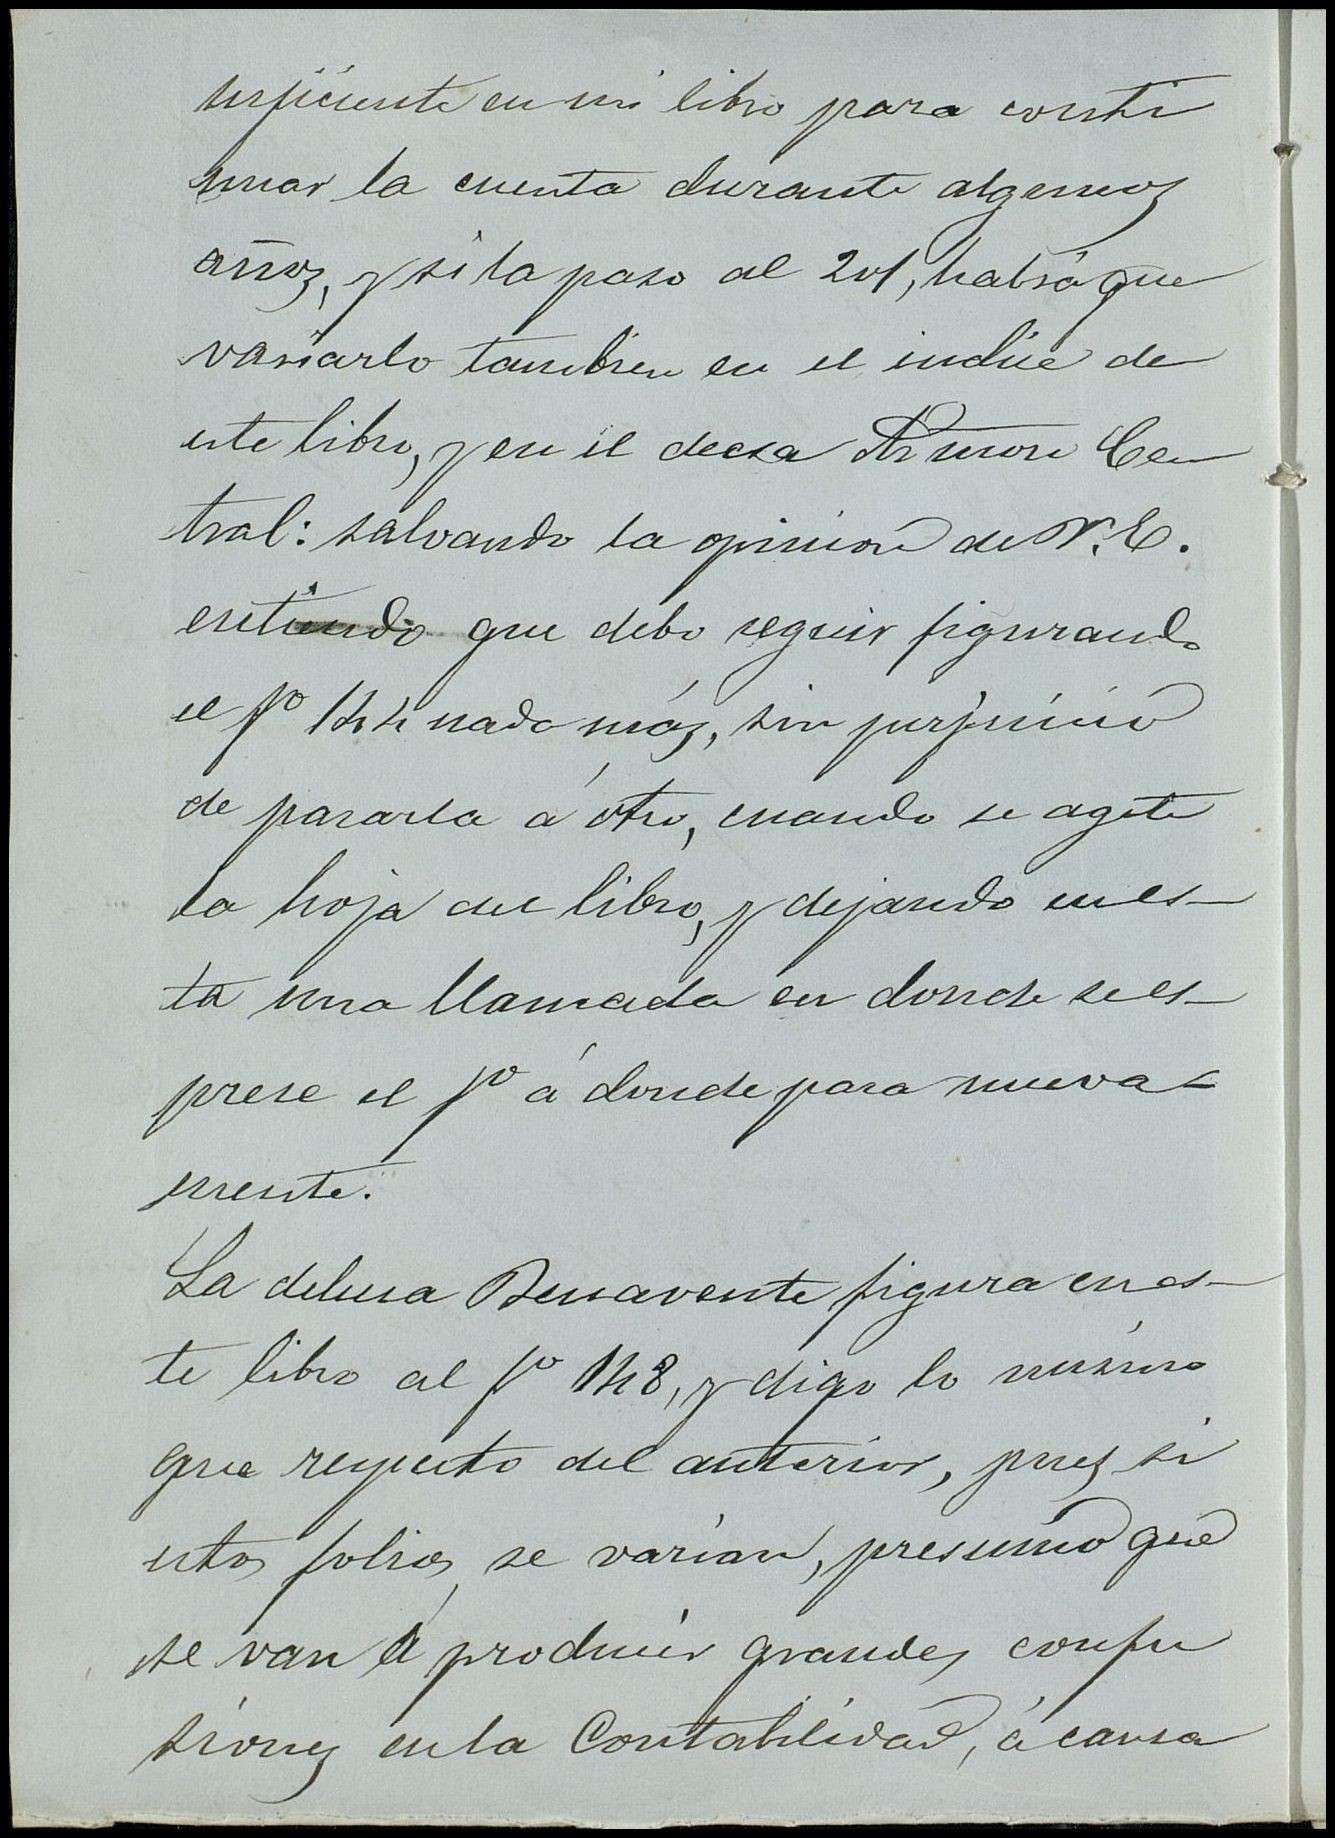 suficiente en mi libro para conti
nuar la cuenta durante algunos
años, y si la paso al 201, habrá que
variarlo tambien en el indice de
este libro, y en el de esa Admon Cen
tral: salvando la opinion de V.E.
entiendo que debo seguir figurando
el fº 144 nada más, sin perjuicio
de pasarla á otro, cuando se agote
la hoja del libro, y dejando en es-
ta una llamada en donde se es-
prese el fº á donde pasa nueva-
mente.
La dehesa Benavente figura en es-
te libro al fº 148, y digo lo mismo
que respecto del anterior, pues si
estos folios se varian, presumo que
se van á producir grandes confu
siones en la Contabilidad, á causa